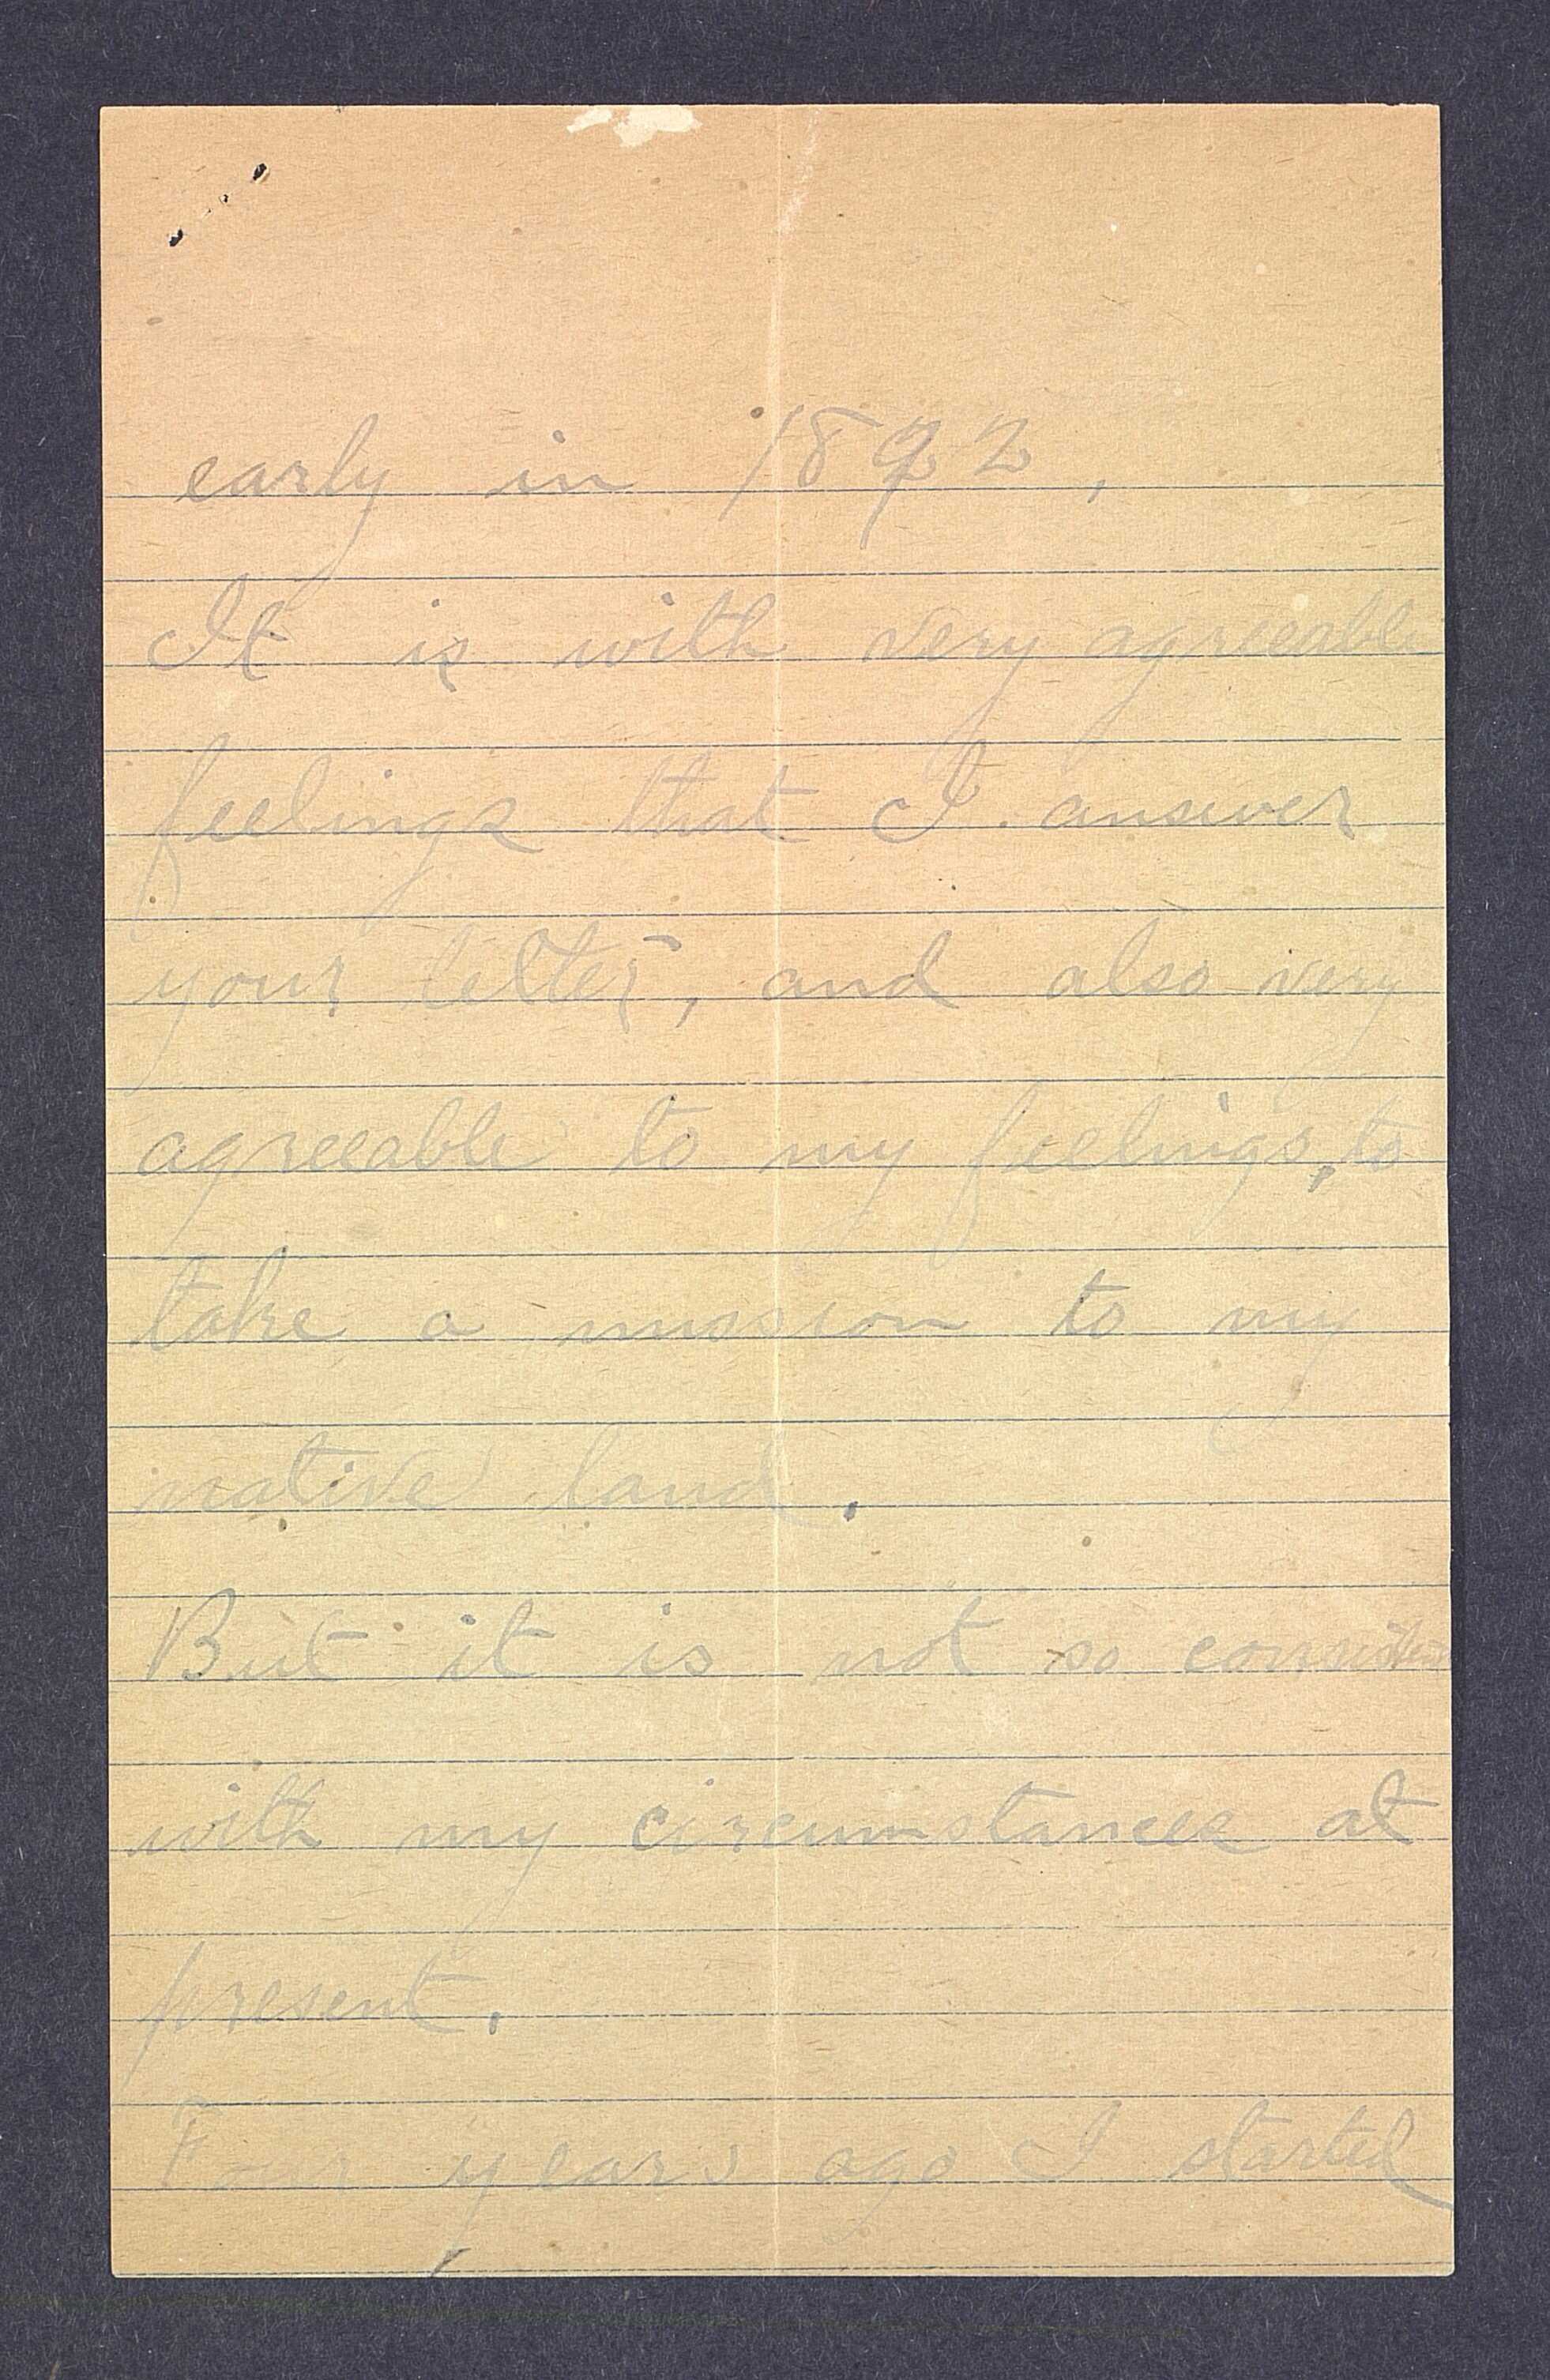 early in 1892,
It is with very agreeable
feelings that I answer
your letter, and also very
agreeable to my feelings, to
take a mission to my
native land.
But it is not so consistent
with my circumstances at
present.
Four years ago I started